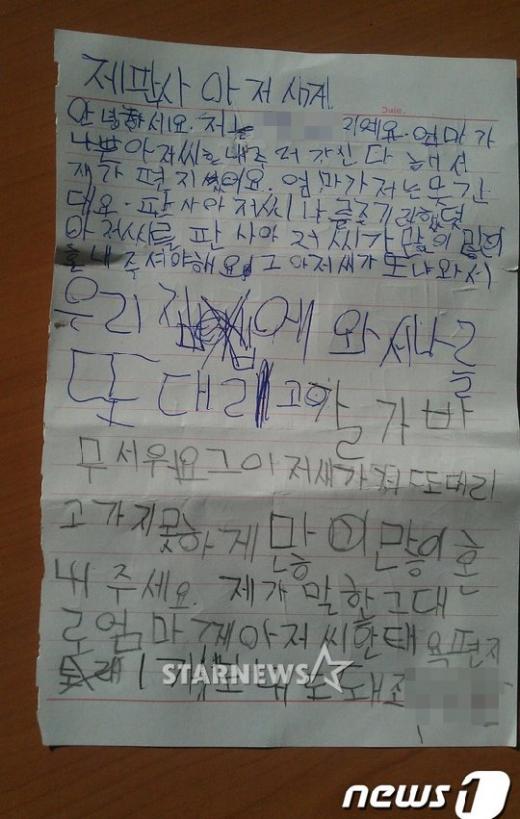 제판사 아저씨게
Date.
안녕하세요. 저는 지예요. 엄마가
나쁜 아저씨를 내주러 가신다 해서
재가 편지썼어요. 엄마가 저는 못 간
대요. 판사 아저씨 나
아저씨를 판사 아저씨가 많이 많이
혼내 주셔야해요. 그 아저씨가 또 나와서
우리 집에 와서 나를
또 대리고 갈가바
무서워요 그 아저새가 또 대리
고 가지못하게 만이 만이 혼
내 주세요. 제가 말한 그대
로 엄마가 아저씨한태 욕편지
STARNEWS
news1